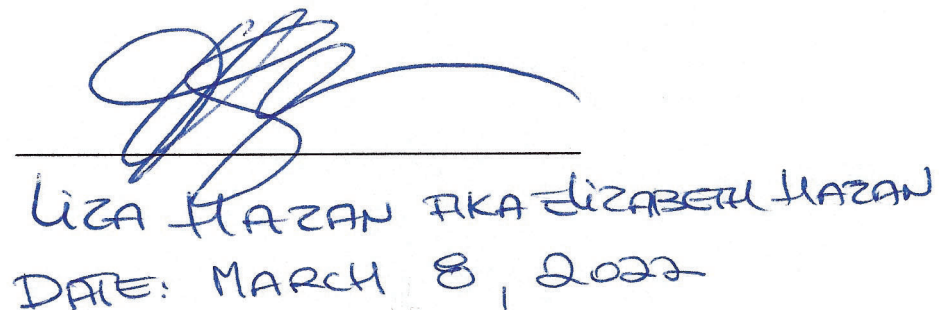 LIZA HAZAN AKA ELIZABETH HAZAN
DATE: MARCH 8, 2022